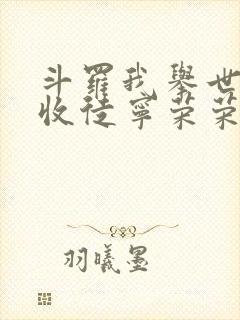 斗羅我舉世
收徒寧荣荣
羽曦墨